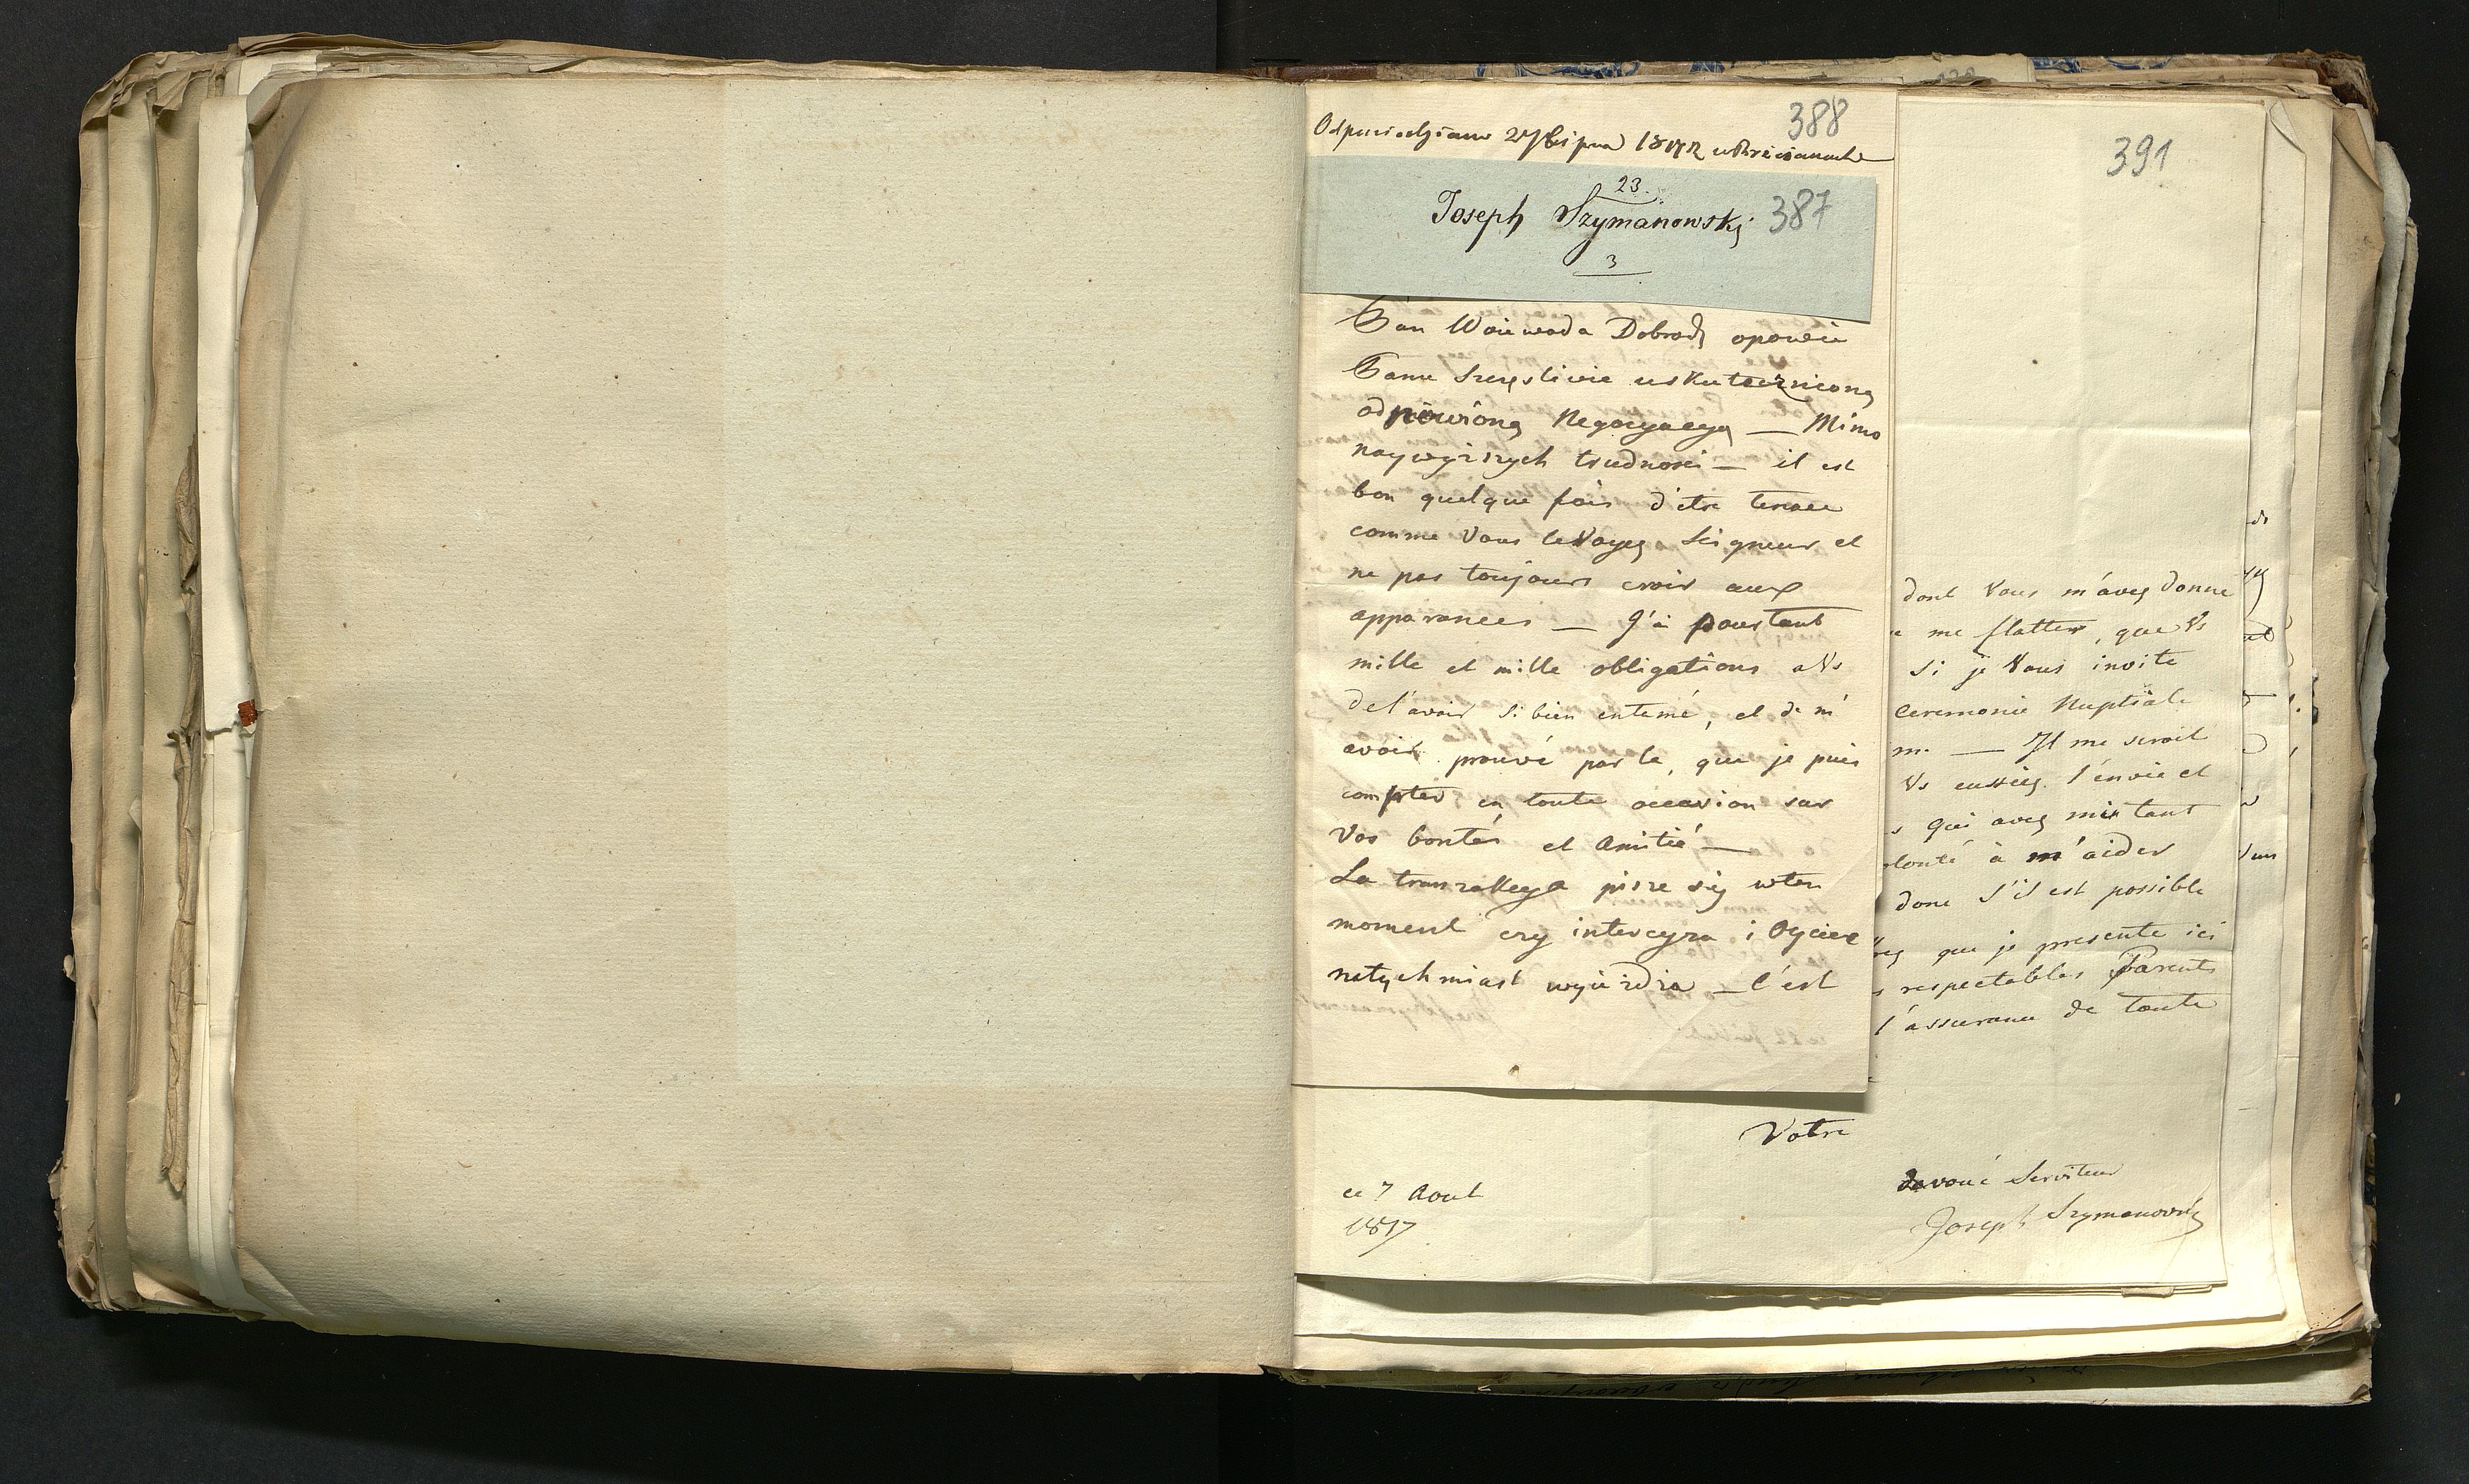 388
Odpowiedziano 27 Lipca
23.
Joseph Szymanowski 387
3
Pan Woiewoda Dobrodz opowie
Panu szczęsliwie uskutecznioną
odnowioną Negocyacyą — Mimo
naywyższych trudnosci — il est
bon quelque fois d'etre tenace
comme Vous le Voyez Seigneur et
ne pas toujours croir aux
apparances — J'ai pourtant
mille et mille obligations a Vs
de l'avoir si bien entamé, et de m'
avoir prouvé par la, que je puis
compter en toute occasion sur
Vos bontés et Amitié —
La tranzakcya pisze się w ten
moment czy intercyza i Oyciec
natychmiast wyieżdza — C'est
391
dont Vous m'avez donné
me flatter, que Vs
si je Vous invite
Ceremonie Nuptiale
— Il me seroit
Vs eussiez l'envie et
s qui avez mis tant
olonté à m'aider
donc s'il est possible
que je presente ici
s respectables Parents
l'assurance de toute
Votre
devoué Serviteur
Joseph Szymanowski
ce 7 Aout
1817